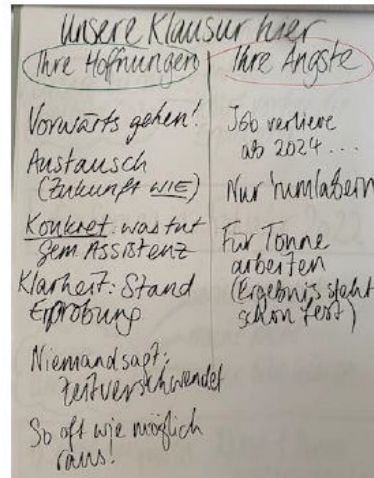 Unsere Klausur hier
Ihre Hoffnungen
Vorwärts gehen!
Austausch
(Zukunft WIE)
Konkret: was tut
Gem Assistenz
Klarheit: Stand
Erprobung
Niemand sagt:
Zeitverschwendet
So oft wie möglich
raus!
Ihre Ängste
Job verliere
ab 2024 ...
Nur 'rumlabern
Für Tonne
arbeiten
(Ergebnis steht
schon fest)